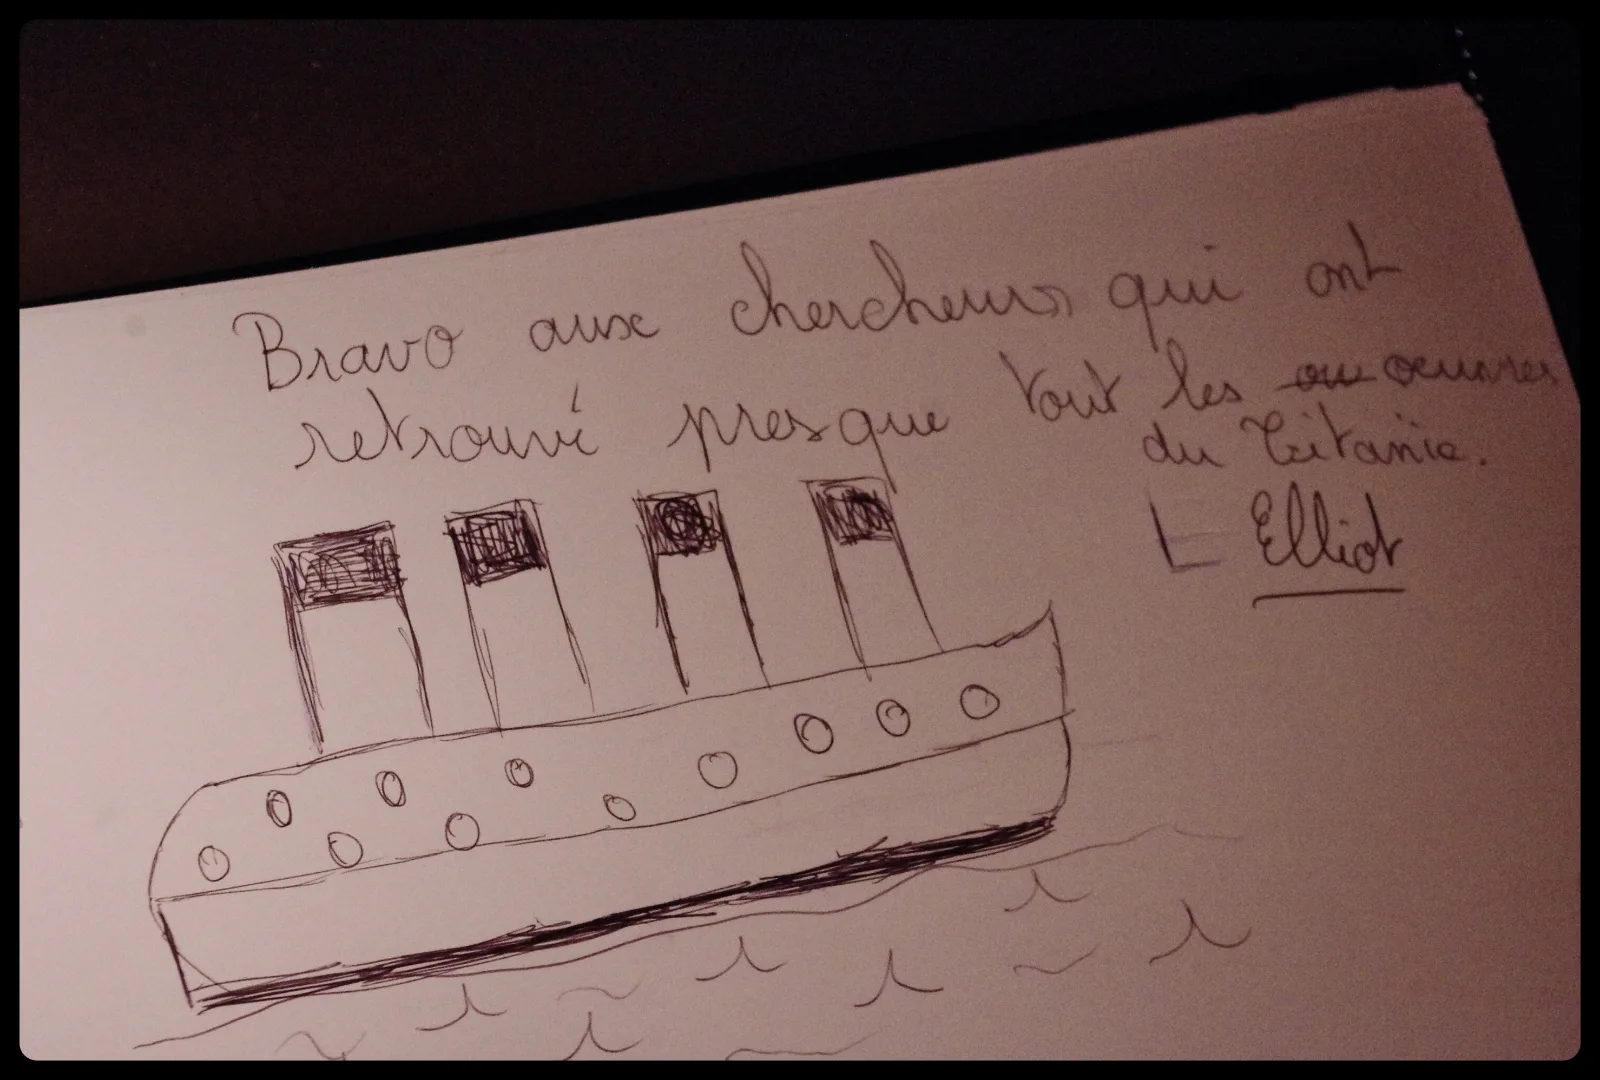 Bravo aux chercheurs qui ont
retrouvé presque tout les ou oeuvres
du Titanic.
Elliot